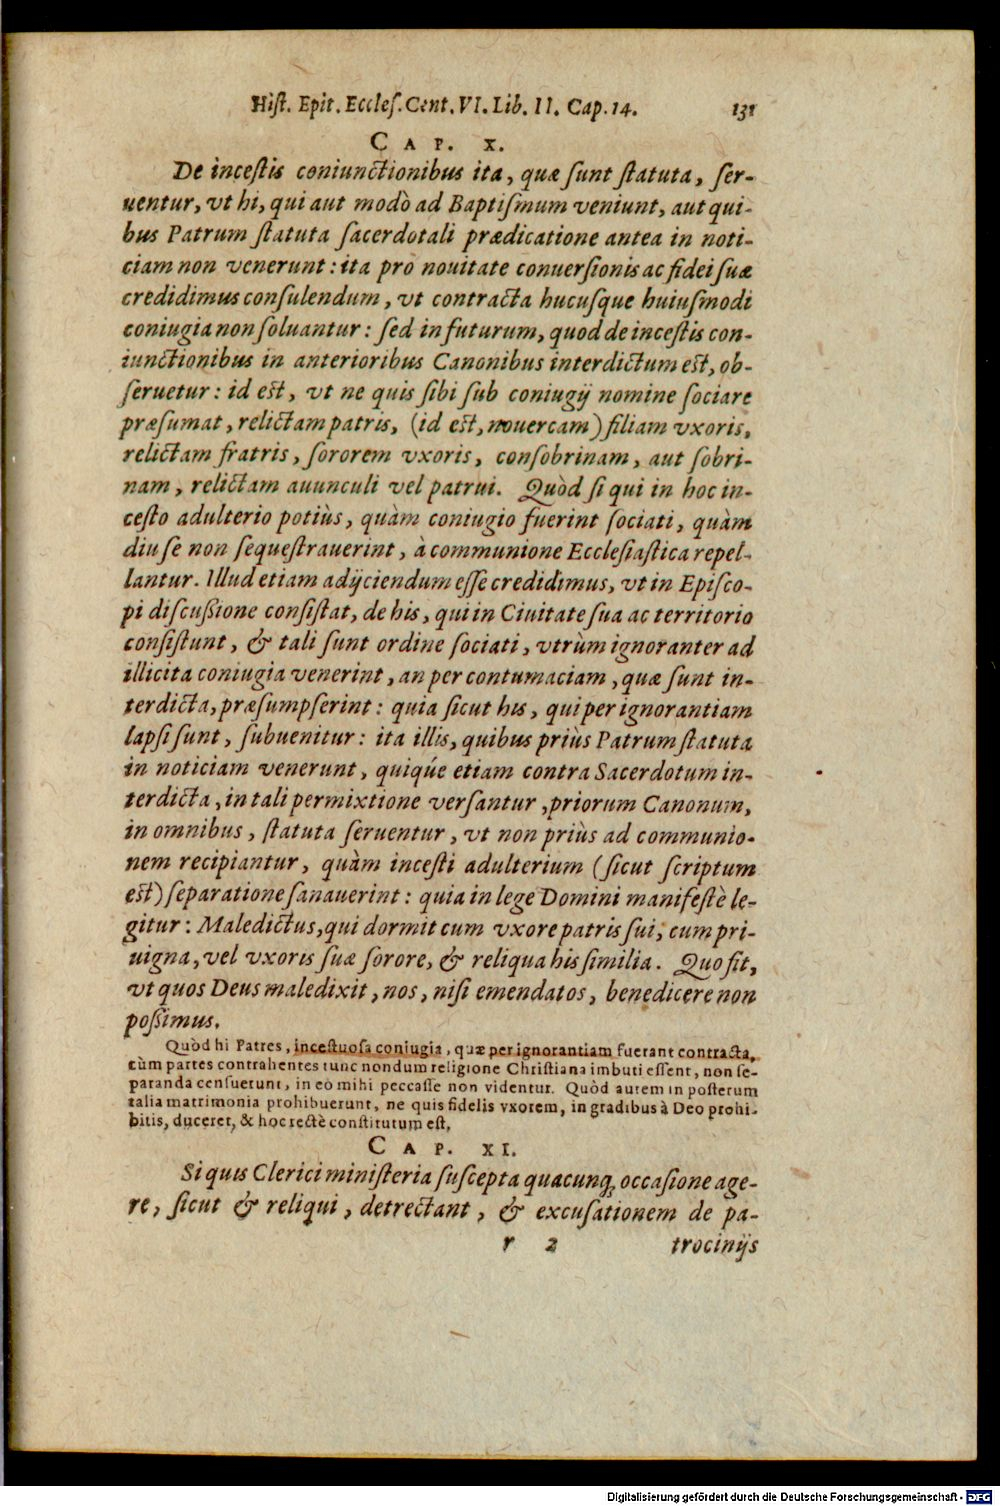 Hist. Epit. Eccles. Cent. VI. Lib. II. Cap. 14. 131
CAP. X.
De incestis coniunctionibus ita, quæ sunt statuta, ser-
uentur, vt hi, qui aut modò ad Baptismum veniunt, aut qui-
bus Patrum statuta sacerdotali prædicatione antea in noti-
ciam non venerunt: ita pro nouitate conuersionis ac fidei suæ
credidimus consulendum, vt contracta hucusque huiusmodi
coniugia non soluantur: sed in futurum, quod de incestis con-
iunctionibus in anterioribus Canonibus interdictum est, ob-
seruetur: id est, vt ne quis sibi sub coniugij nomine sociare
præsumat, relictam patris, (id est, nouercam) filiam vxoris,
relictam fratris, sororem vxoris, consobrinam, aut sobri-
nam, relictam auunculi vel patrui. Quòd si qui in hoc in-
cesto adulterio potiùs, quàm coniugio fuerint sociati, quàm
diu se non sequestrauerint, à communione Ecclesiastica repel-
lantur. Illud etiam adijciendum esse credidimus, vt in Episco-
pi discußione consistat, de his, qui in Ciuitate sua ac territorio
consistunt, & tali sunt ordine sociati, vtrùm ignoranter ad
illicita coniugia venerint, an per contumaciam, quæ sunt in-
terdicta, præsumpserint: quia sicut his, qui per ignorantiam
lapsi sunt, subuenitur: ita illis, quibus priùs Patrum statuta
in noticiam venerunt, quiqúe etiam contra Sacerdotum in-
terdicta, in tali permixtione versantur, priorum Canonum,
in omnibus, statuta seruentur, vt non priùs ad communio-
nem recipiantur, quàm incesti adulterium (sicut scriptum
est) separatione sanauerint: quia in lege Domini manifestè le-
gitur: Maledictus, qui dormit cum vxore patris sui, cum pri-
uigna, vel vxoris suæ sorore, & reliqua his similia. Quo fit,
vt quos Deus maledixit, nos, nisi emendatos, benedicere non
poßimus.
Quòd hi Patres, incestuosa coniugia, quæ per ignorantiam fuerant contracta,
cùm partes contrahentes tunc nondum religione Christiana imbuti essent, non se-
paranda censuerunt, in eo mihi peccasse non videntur. Quòd autem in posterum
talia matrimonia prohibuerunt, ne quis fidelis vxorem, in gradibus à Deo prohi-
bitis, duceret, & hoc rectè constitutum est.
CAP. XI.
Si quis Clerici ministeria suscepta quacunq; occasione age-
re, sicut & reliqui, detrectant, & excusationem de pa-
r 2 trocinijs
Digitalisierung gefördert durch die Deutsche Forschungsgemeinschaft - DFG